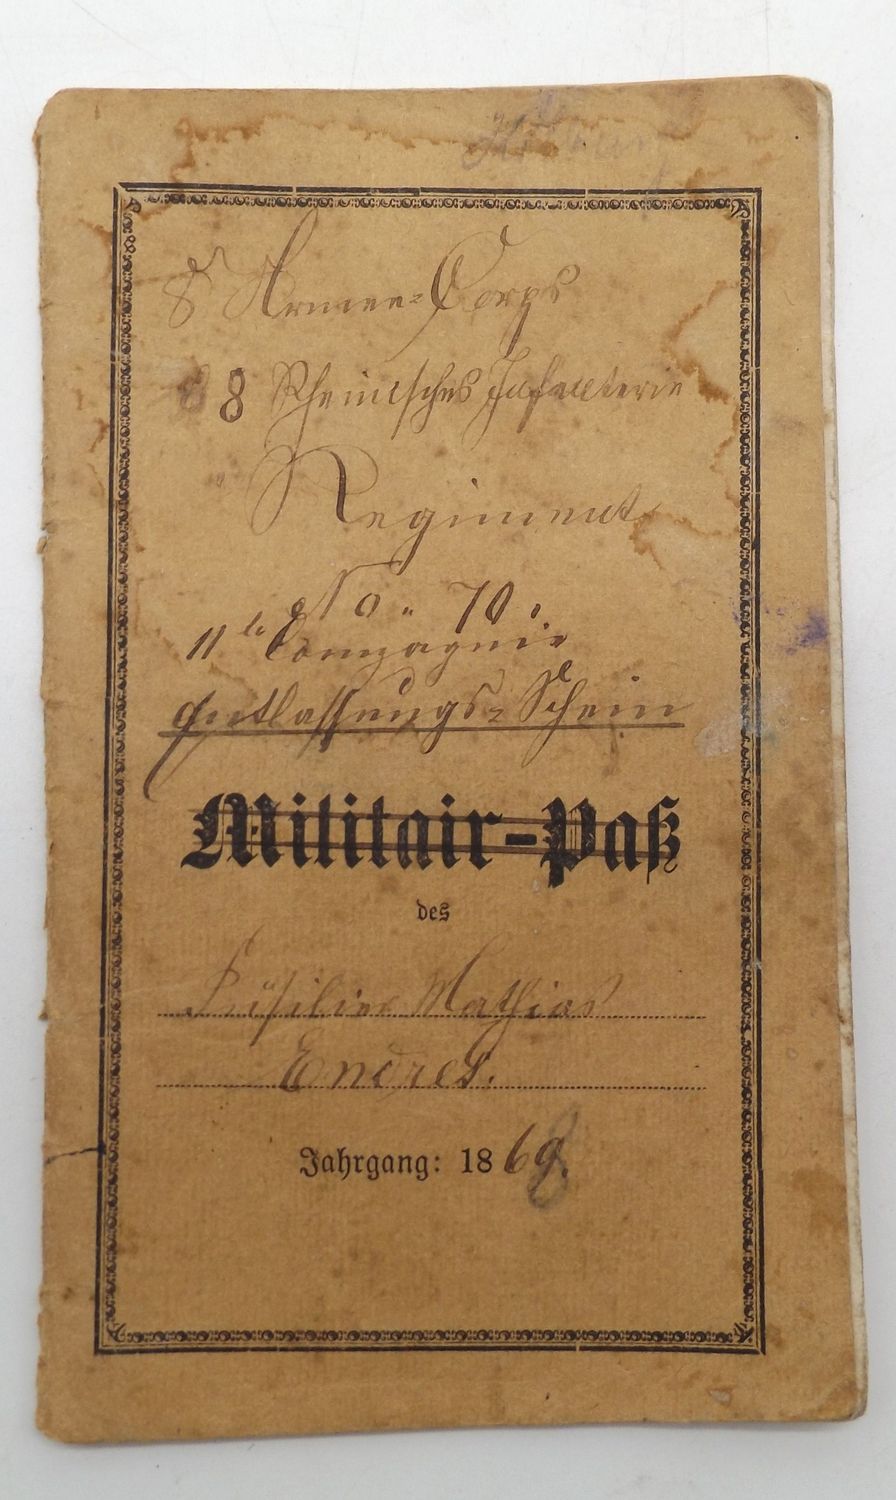 8 Armee-Corps
8 Rheinisches Infanterie
Regiment
No. 70.
11te Compagnie
Entlassungs-Schein
Militair-Paß
des
Füsilier Mathias
Endres.
Jahrgang: 1869